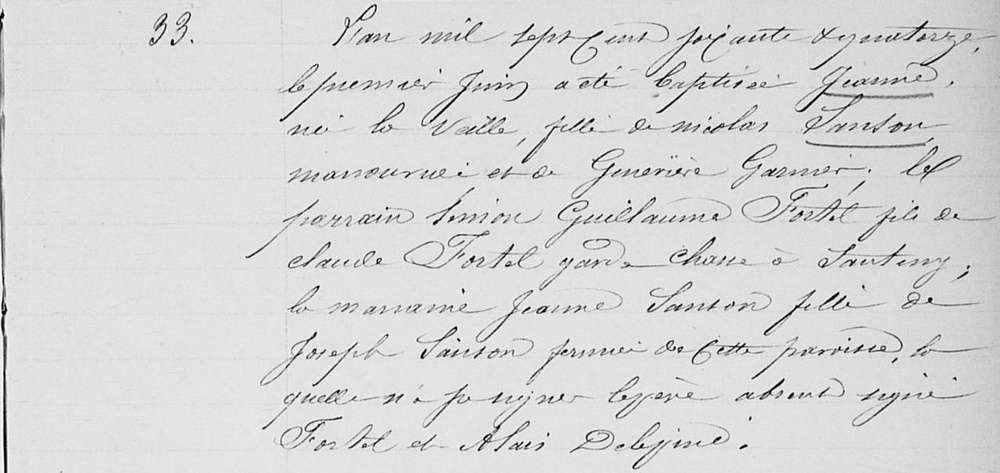 33.
L'an mil sept cent soixante & quatorze,
le premier Juin a été baptisée Jeanne,
née la veille, fille de nicolas Sanson,
manouvrier et de Geneviève Garnier; le
parrain Simon Guillaume Fortel fils de
claude Fortel garde chasse à Santeny;
la marraine Jeanne Sanson fille de
Joseph Sanson fermier de cette paroisse, la
quelle n'a su signer le père absent signé
Fortel et Alais